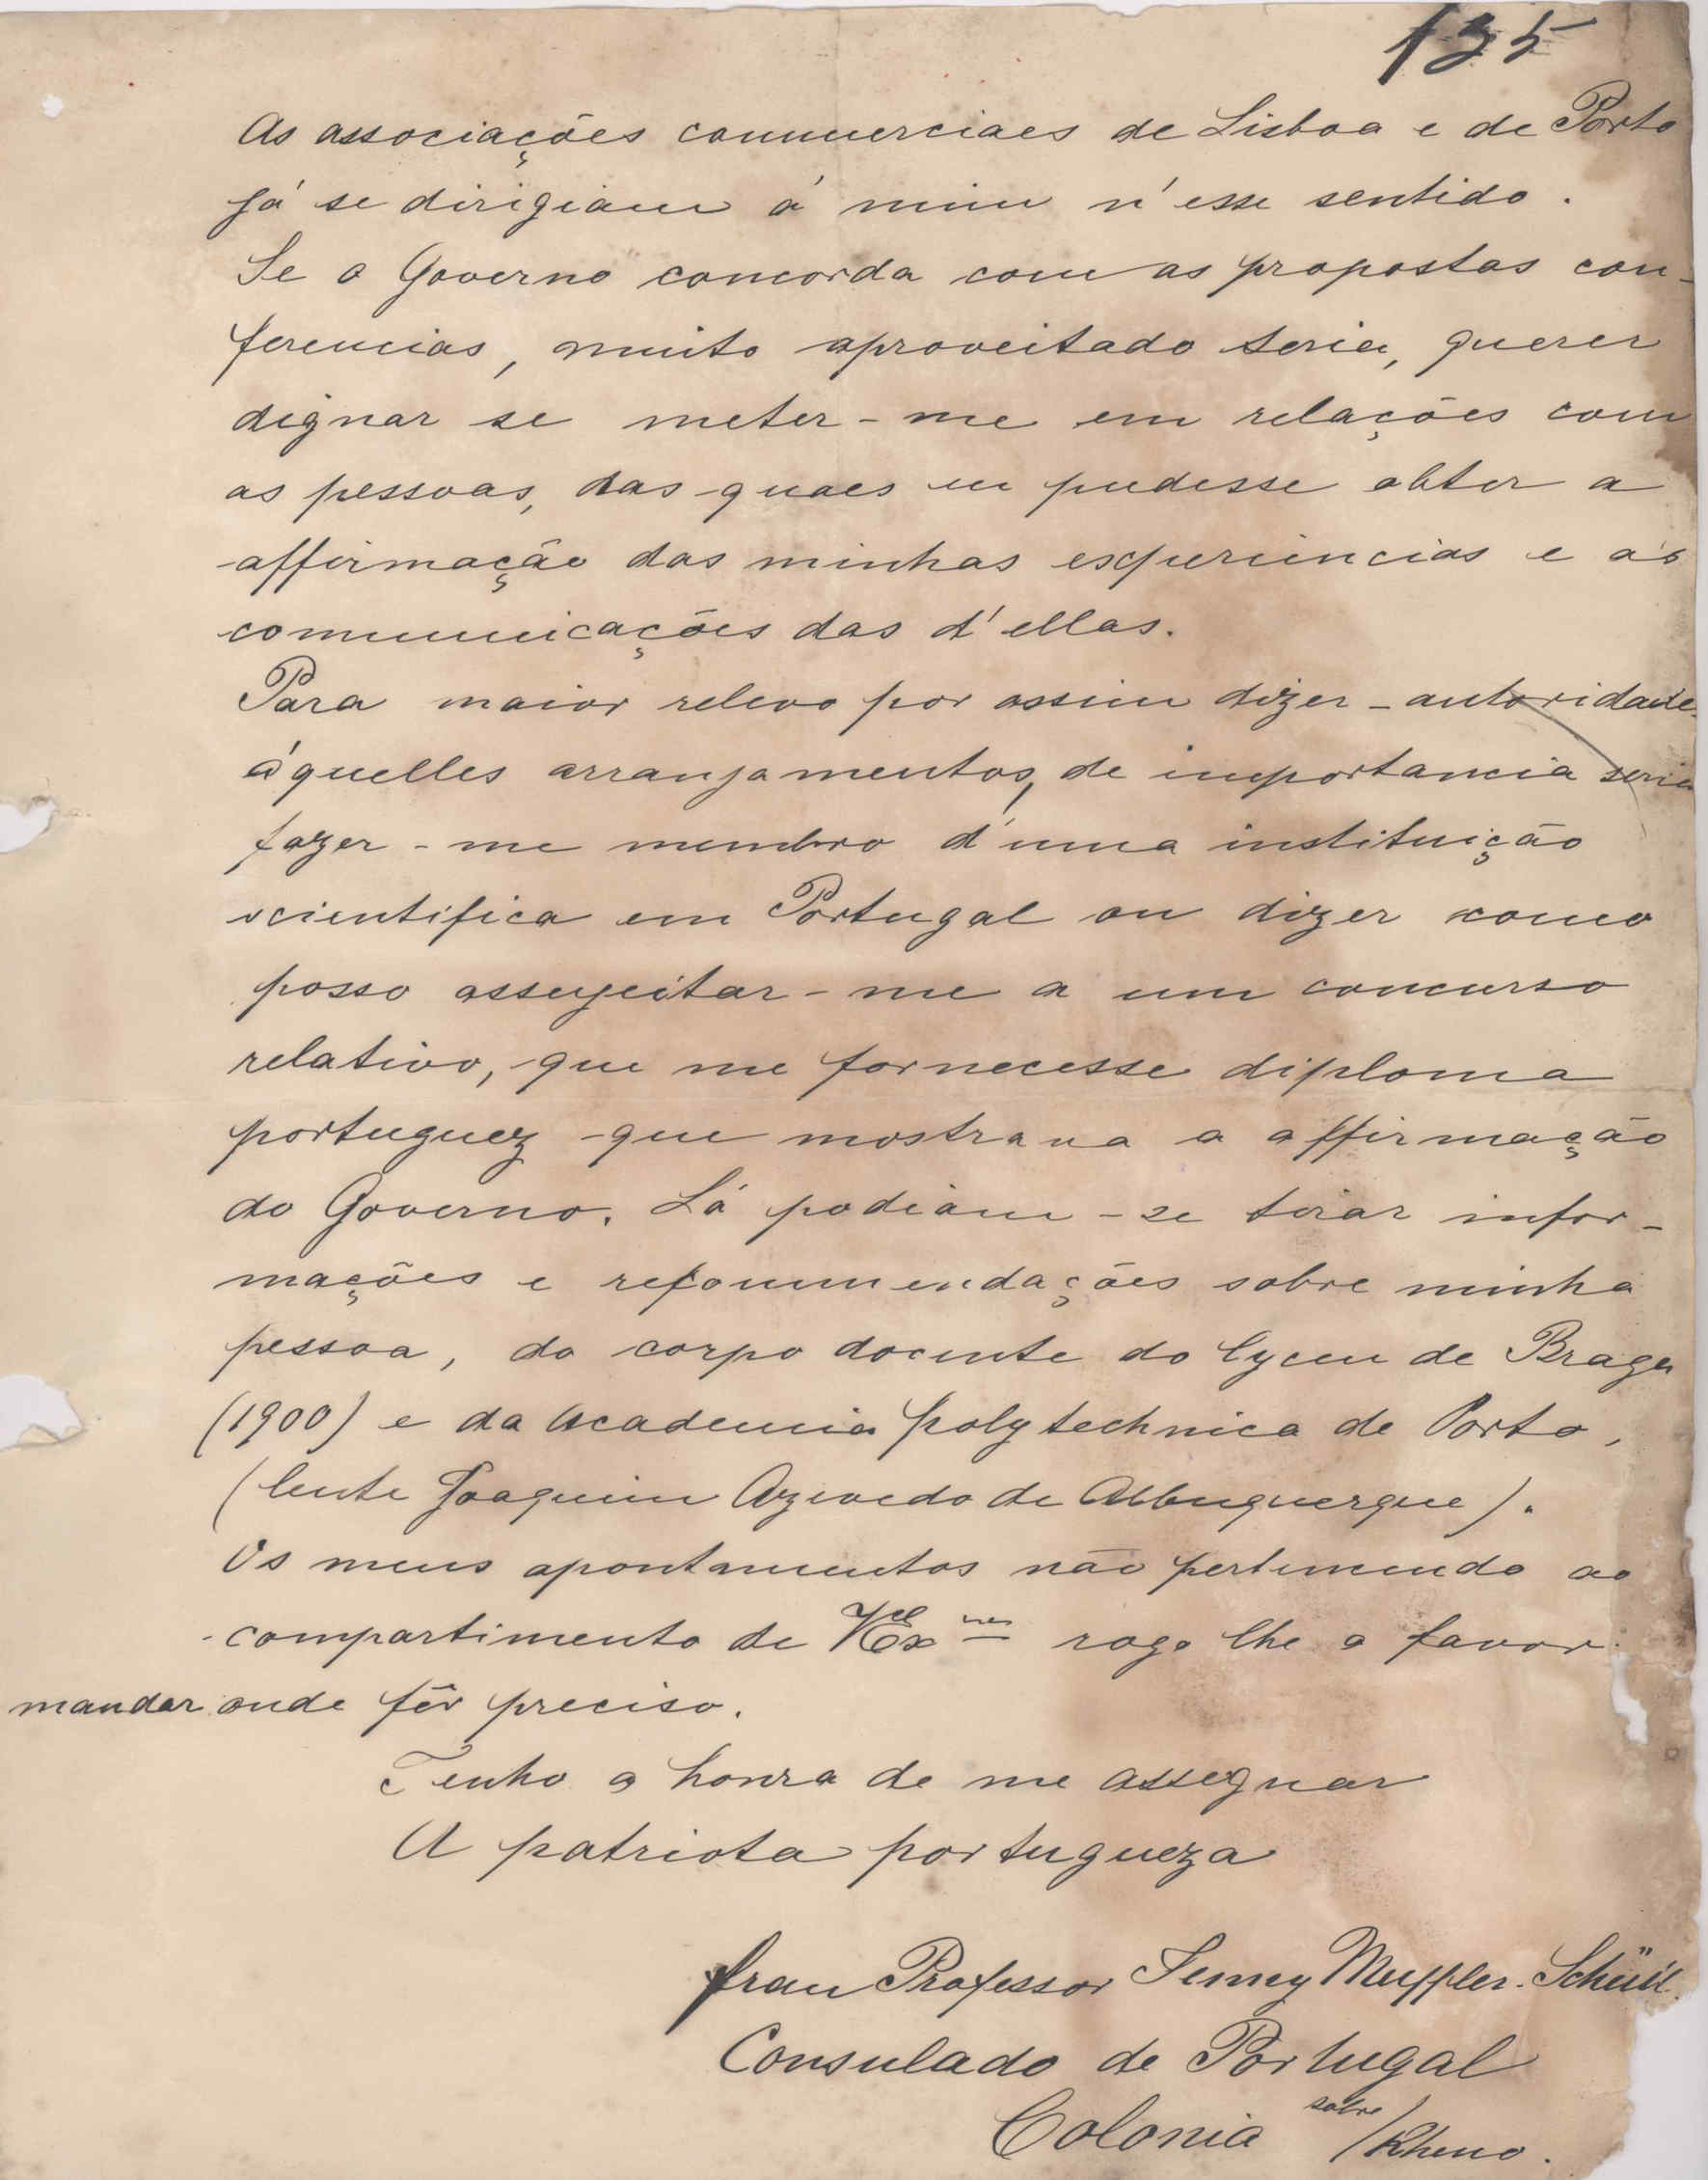 135
As associações commerciaes de Lisboa e de Porto
já se dirigiam á mim n'esse sentido.
Se o Governo concorda com as propostas con-
ferencias, muito aproveitado seria, querer
dignar se meter-me em relações com
as pessoas, das quaes eu pudesse obter a
affirmação das minhas experiencias e as
communicações das d'ellas.
Para maior relevo por assim dizer - autoridade
áquelles arranjamentos, de importancia seria
fazer-me membro d'uma instituição
scientifica em Portugal ou dizer como
posso assugeitar-me a um concurso
relativo, que me fornecesse diploma
portuguez que mostrava a affirmação
do Governo. Lá podiam-se tirar infor-
mações e recommendações sobre minha
pessoa, do corpo docente do lyceu de Braga
(1900) e da Academia polytechnica de Porto,
(lente Joaquim Azevedo de Albuquerque).
Os meus apontamentos não pertencendo ao
compartimento de VEx rogo lhe o favor
mandar onde fôr preciso.
Tenho a honra de me assegnar
A patriota portugueza
frau Professor
Consulado de Portugal
Colonia sobre/Rheno.